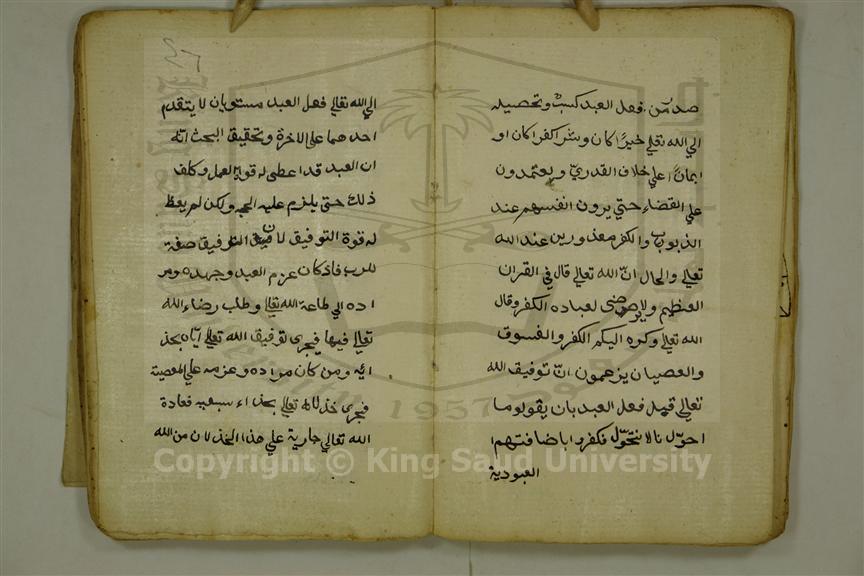 صد من فعل العبد كسب وتحصيله
الي الله تعلي خيرًا كان وشرا كفرا كان او
ايمانًا علي خلاف القدري ويعتمدون
علي القضاء حتي يرون انفسهم عند
الذبوب والكفر معذورين عند الله
تعالي والحال ان الله تعالي قال في القران
العظيم ولا يرضي لعباده الكفر وقال
الله تعالي وكره اليكم الكفر والفسوق
والعصيان يزعمون انّ توفيق الله
تعالي قبل فعل العبد بان يقولوا ما
احوّل نالا نتحوّل فكفروا باضافتهم
العبودية
٤٦
الي الله تعالي فعل العبد مستويان لا يتقدم
احدهما علي الاخرة وتحقيق البحث انه
ان العبد قد اعطى له قوة العمل وكلف
ذلك حتى يلزم عليه الحجه ولكن لم يعظ
له قوة التوفيق لان التوفيق صفة
للرب فاذ كان عزم العبد وجهده ومر
اده الي طاعة الله تعالي وطلب رضاء الله
تعالي فيها فيجرى توفيق الله تعالي اياه بحذ
ائه ومن كان مراده وعزمه علي المعصية
فيجرى خذلان الله تعالي بحذاء سعيه فعادة
الله تعالي جارية علي هذا الخذلان من الله
Copyright © King Saud University
1957